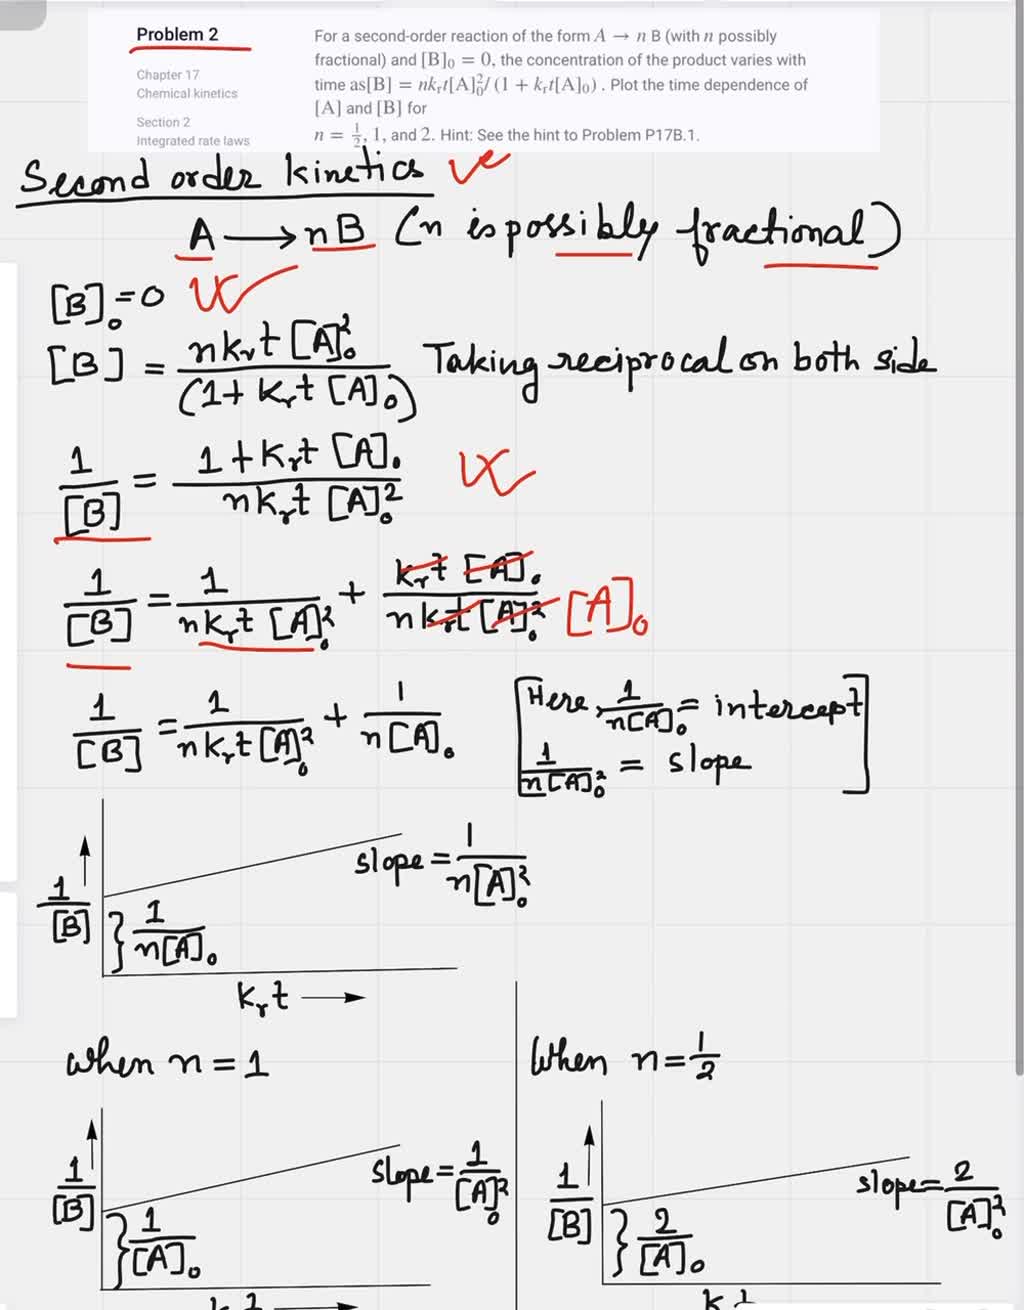 Problem 2
Chapter 17
Chemical kinetics
Section 2
Integrated rate laws
For a second-order reaction of the form A → n B (with n possibly
fractional) and [B]₀ = 0, the concentration of the product varies with
time as[B] = nkᵣt[A]₀²/(1 + kᵣt[A]₀) . Plot the time dependence of
[A] and [B] for
n = ½, 1, and 2. Hint: See the hint to Problem P17B.1.
Second order kinetics
A ⟶ nB (n is possibly fractional)
[B]₀ = 0
[B] = nkᵣt [A]₀² / (1 + kᵣt [A]₀) Taking reciprocal on both side
1/[B] = 1 + kᵣt [A]₀ / nkᵣt [A]₀²
1/[B] = 1/nkᵣt [A]₀² + kᵣt [A]₀ / nkᵣt [A]₀² [A]₀
1/[B] = 1/nkᵣt [A]₀² + 1/n[A]₀
[Here, 1/n[A]₀ = intercept
1/n[A]₀² = slope]
slope = 1/n[A]₀²
1/[B]
} 1/n[A]₀
kᵣt ⟶
when n = 1
slope = 1/[A]₀²
1/[B]
} 1/[A]₀
When n = 1/2
slope = 2/[A]₀²
1/[B]
} 2/[A]₀